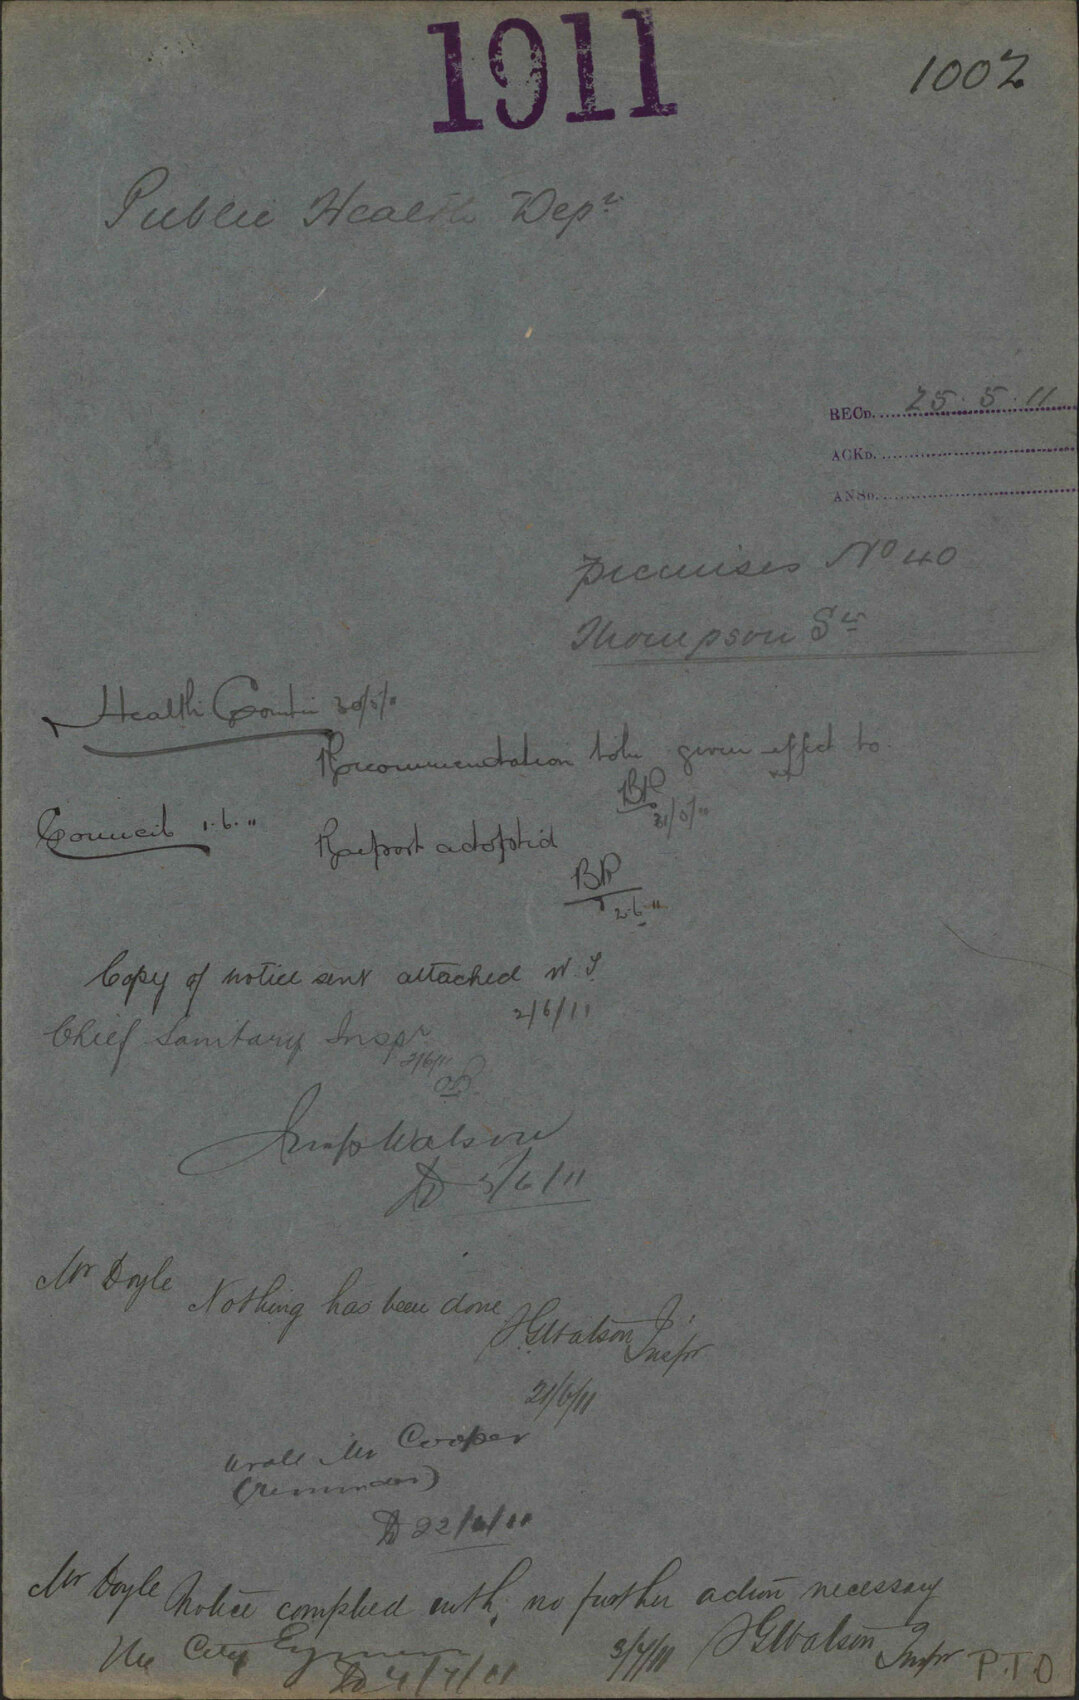 1911
1002
Public Health Depr
RECD. 25.5.11
ACKD.
ANSD.
premises No 40
Thompson St
Health Comtee 30/5/11
Recommendation to be given effect to
BP
31/5/11
Council 1.6.11
Report adopted
BP
2.6.11
Copy of notice sent attached W.S.
2/6/11
Chief Sanitary Inspr
2/6/11
Insp Watson
D 3/6/11
Mr Doyle
Nothing has been done
HGWatson Inspr
21/6/11
wrote Mr Cooper
(reminder)
D 22/6/11
Mr Doyle Notice complied with, no further action necessary
HGWatson Inspr
3/7/11
The City Engineer
D 4/7/11
P.T.O